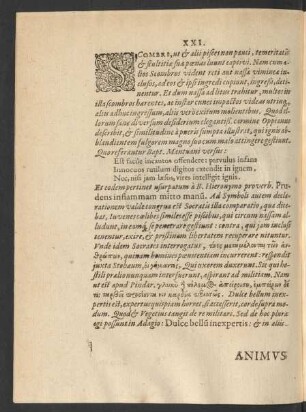 XXI.
SCOMBRI, ut & alii pisces non pauci, temeritatis
& stultitiæ suæ pœnas luunt captivi. Nam cum
alios Scombros vident reti aut nassa viminea in-
clusos, ad eos & ipsi ingredi cupiunt, ingressi, deti-
nentur. Et dum nassa ad litus trahitur, multos in
illa scombros hærentes, ac instar cunei impactos videas utring,
alios adhuc ingressum, alios verò exitum molientes. Quod al-
terum sane diversum desiderium eleganti carmine Oppianus
describit, & similitudine à pueris sumpta illustrat, qui ignis ab-
blandientem fulgorem magno suo cum malo attingere gestiunt.
Quo referantur Bapt. Mantuani versus:
Est facile incautos offendere: parvulus infans
Innocuos rutilum digitos extendit in ignem,
Nec, nisi jam læsus, vires intelligit ignis.
Et eodem pertinet usurpatum à B. Hieronymo proverb. Pru-
dens in flammam mitto manū. Ad Symboli autem decla-
rationem valde congruit Socratis illa comparatio, quæ dice-
bat, iuvenes cælibes similes esse pisibus, qui circum nassam al-
ludunt, in eamq́ se penetrare gestiunt: contra, qui jam inclusi
tenentur, exire, & pristinam libertatem recuperare nituntur.
Unde idem Socratis interrogatus,
juxta Stobæum, Qui uxorem duxerunt. Sic qui ho-
stili prælio nunquam interfuerunt, aspirant ad militiam. Nam
ut ait apud Pindar.
Dulce bellum inex-
pertis est, expertus quispiam horret, si accesserit, cor de supra mo-
dum. Quod & Vegetius tangit de re militari. Sed de hoc plura
egi possunt in Adagio: Dulce bellū inexpertis: & in aliis.
ANIMVS